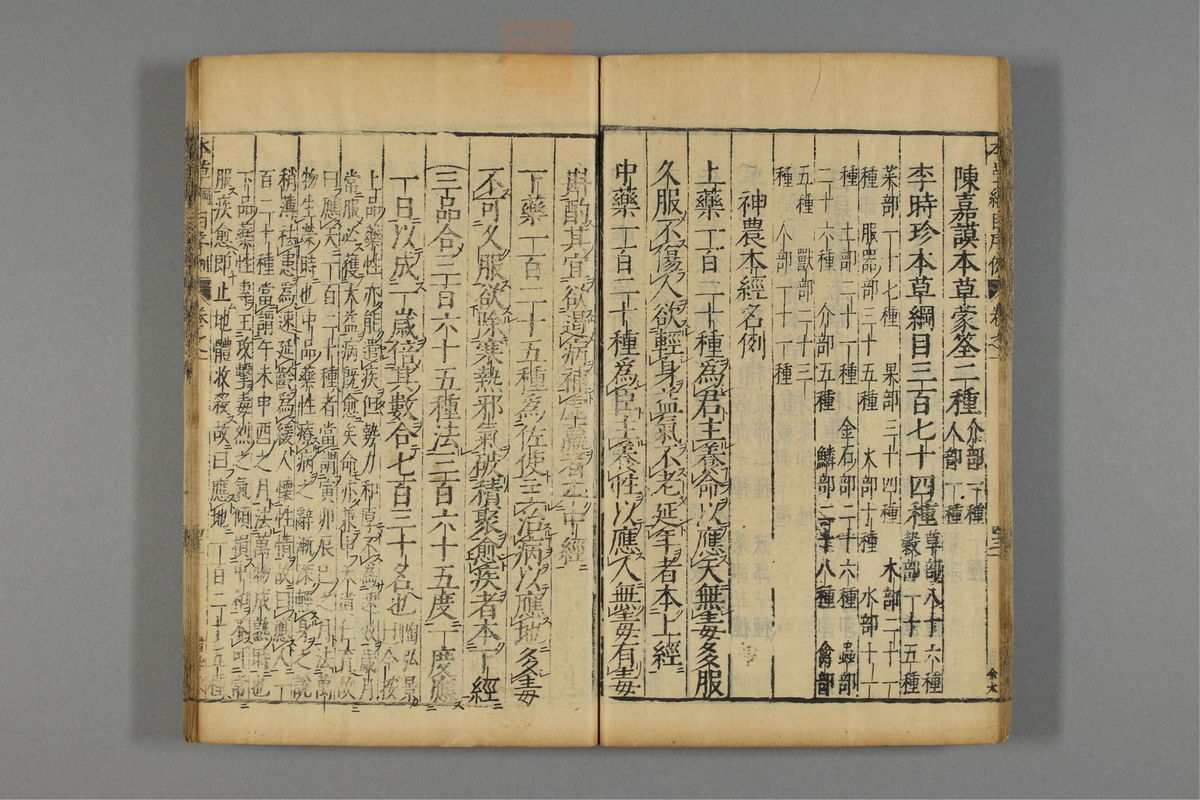 本草綱目序例 卷之一
陳嘉謨本草蒙筌二種 介部一種 人部一種
李時珍本草綱目三百七十四種 草部八十六種 穀部一十五種
菜部一十七種 果部三十四種 木部二十一
種 服器部三十五種 火部十種 水部十一
種 土部二十一種 金石部二十六種 蟲部
二十六種 介部五種 鱗部二十八種 禽部
五種 獸部二十三
種 人部一十一種
神農本經名例
上藥一百二十種爲君主養命以應天無毒多服
久服不傷人欲輕身益氣不老延年者本上經
中藥一百二十種爲臣主養性以應人無毒有毒
斟酌其宜欲遏病補虛羸者本中經
下藥一百二十五種爲佐使主治病以應地多毒
不可久服欲除寒熱邪氣破積聚愈疾者本下經
三品合三百六十五種法三百六十五度一度應
一日以成一歲倍其數合七百三十名也 陶弘景曰今按
上品藥性亦能遣疾但勢力和厚不爲速效歲月
常服必獲大益病既愈矣命亦兼申天道仁育故
曰應天一百二十種者當謂寅卯辰巳之月法萬
物生榮時也中品藥性療病之辭漸深輕身之說
稍薄祛患爲速延齡爲緩人懷性情故曰應人一
百二十種當謂午未申酉之月法萬物成熟時也
下品藥性專主攻擊毒烈之氣傾損中和不可常
服疾愈即止地體收殺故曰應地一百二十五種
本草綱目序例 卷之一